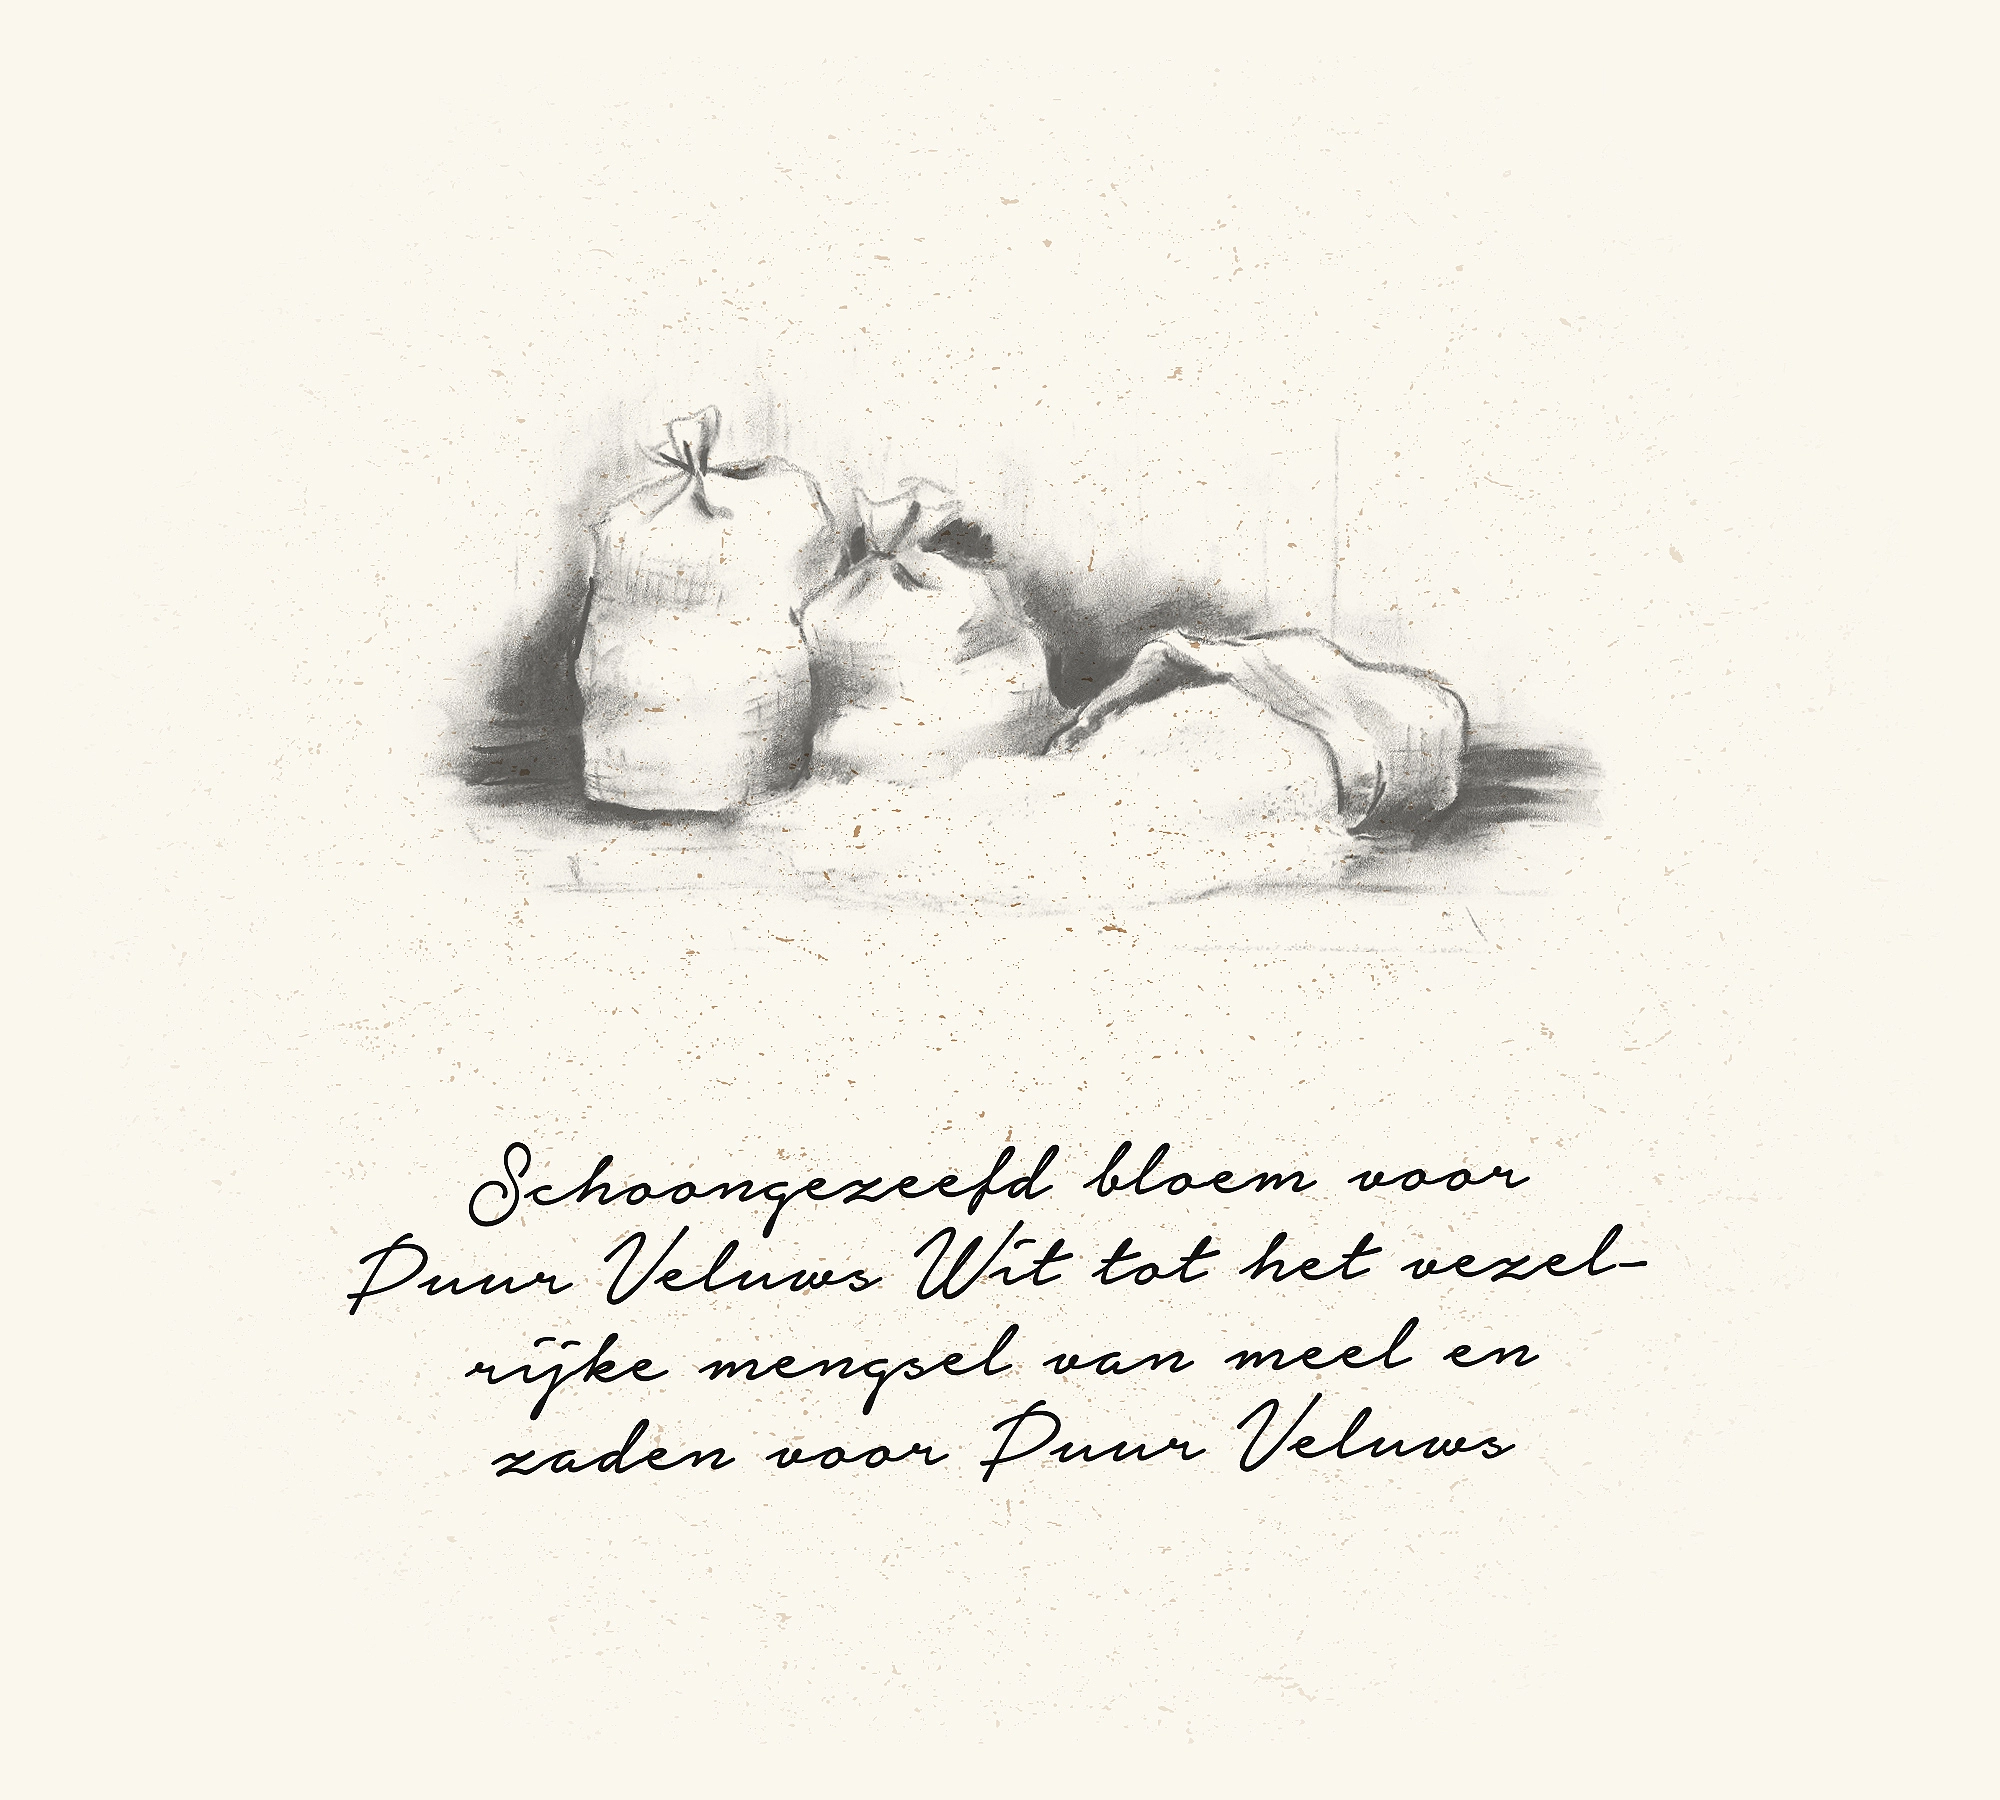 Schoongezeefd bloem voor
Puur Veluws Wit tot het vezel-
rijke mengsel van meel en
zaden voor Puur Veluws